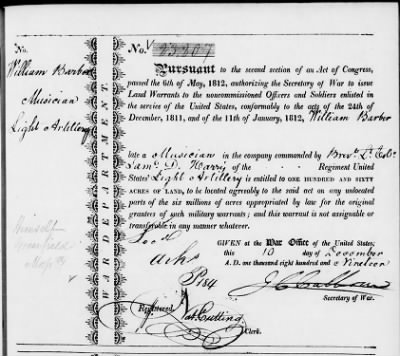 No.
William Barber
Musician
Light Artillery
WAR DEPARTMENT.
No. 23207
Pursuant to the second section of an Act of Congress,
passed the 6th of May, 1812, authorizing the Secretary of War to issue
Land Warrants to the noncommissioned Officers and Soldiers enlisted in
the service of the United States, conformably to the acts of the 24th of
December, 1811, and of the 11th of January, 1812, William Barber
late a Musician in the company commanded by Brevt. Lt. Colo.
Saml. D. Harris of the Regiment United
States' Light Artillery is entitled to ONE HUNDRED AND SIXTY
ACRES OF LAND, to be located agreeably to the said act on any unlocated
parts of the six millions of acres appropriated by law for the original
grantees of such military warrants; and this warrant is not assignable or
transferable in any manner whatever.
GIVEN at the War Office of the United States;
this 10 day of December
A. D. one thousand eight hundred and Nineteen
J C Calhoun
Secretary of War.
Registered
Nat Cutting
Clerk.